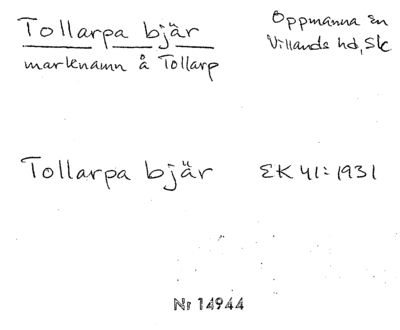 Tollarpa bjär
marknamn å Tollarp
Oppmanna sn
Villands hd, Sk
Tollarpa bjär EK 41: 1931
Nr 14944